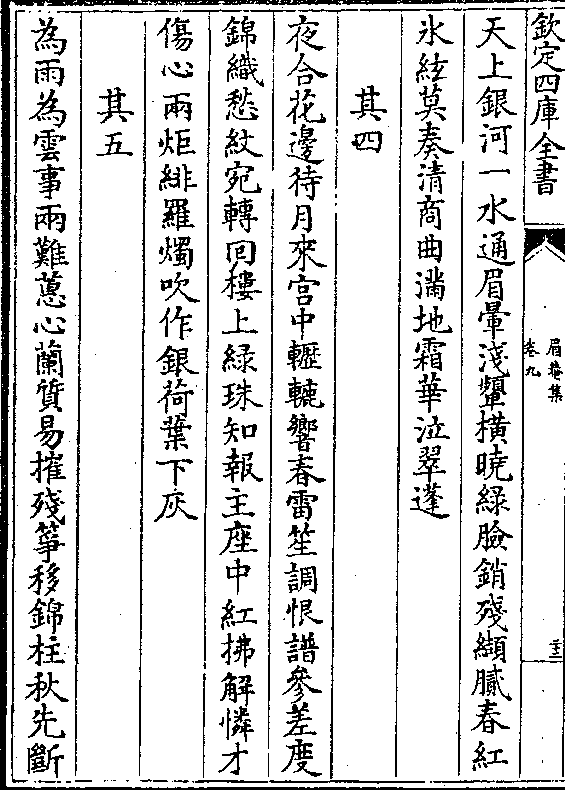 欽定四庫全書
眉菴集
卷九
天上銀河一水通眉暈淺顰橫曉綠臉銷殘纈膩春紅
氷絃莫奏清商曲滿地霜華泣翠蓬
其四
夜合花邊待月來宮中轣轆響春雷笙調恨譜參差度
錦織愁紋宛轉回樓上綠珠知報主座中紅拂解憐才
傷心兩炬緋羅燭吹作銀荷葉下灰
其五
為雨為雲事兩難蕙心蘭質易摧殘箏移錦柱秋先斷